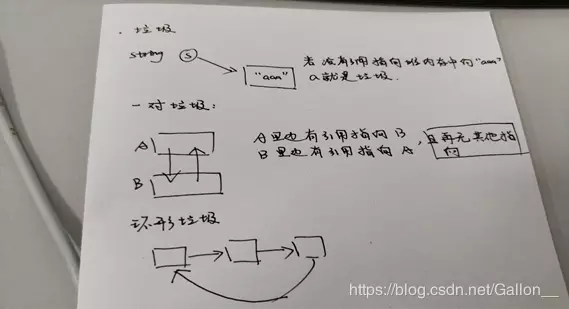 . 垃圾
string s "aaa" 若没有引用指向堆内存中的"aaa"
a就是垃圾.
一对垃圾:
A A里也有引用指向B
B B里也有引用指向A, 且再无其他指
向
环形垃圾
https://blog.csdn.net/Gallon__